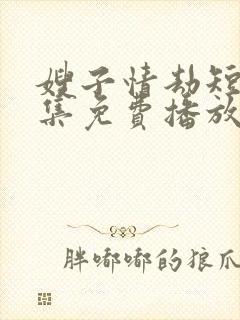 嫂子情劫短
集免費播放
胖嘟嘟的狼爪